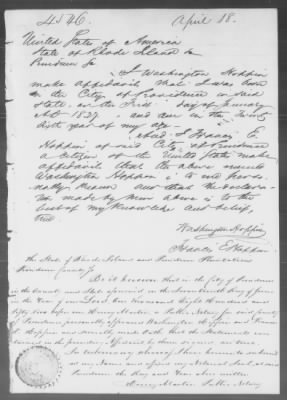 4546. April 18.
United States of America
State of Rhode Island &
Providence Ss
I Washington Hoppin
make affidavit that I was born
in the City of Providence in said
State, on the First day of January
AD 1827, and am in the
year of my age.
And I Francis E.
Hoppin of said City of Providence
a citizen of the United States make
affidavit that the above named
Washington Hoppin is to me perso-
nally known and that the declara-
tion made by him above is to the
best of my knowledge and belief,
true.
Washington Hoppin
Francis E Hoppin
The State of Rhode Island and Providence Plantations
Providence County Ss.
Be it known that in the City of Providence
in the County and State aforesaid on the Seventeenth day of
in the Year of our Lord One Thousand Eight Hundred and
Fifty two before me Henry Martin a Public Notary for said County
of Providence personally appeared Washington Hoppin and Francis
E. Hoppin and severally made oath that the statements
contained in the preceding affidavit by them signed are true.
In testimony whereof I have hereunto subscribed
my Name and affixed my Notarial Seal at said
Providence the Day and Year above written
Henry Martin Public Notary